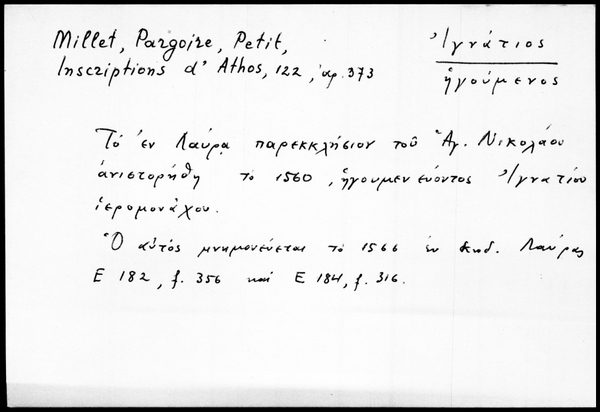 Millet, Pargoire, Petit,
Inscriptions d'Athos, 122, ἀρ. 373
Ἰγνάτιος
ἡγούμενος
Τό ἐν Λαύρᾳ παρεκκλήσιον τοῦ Ἁγ. Νικολάου
ἀνιστορήθη τό 1560, ἡγουμενεύοντος Ἰγνατίου
ἱερομονάχου.
Ὁ αὐτός μνημονεύεται τό 1566 ἐν κωδ. Λαύρας
E 182, f. 356 καί E 184, f. 316.